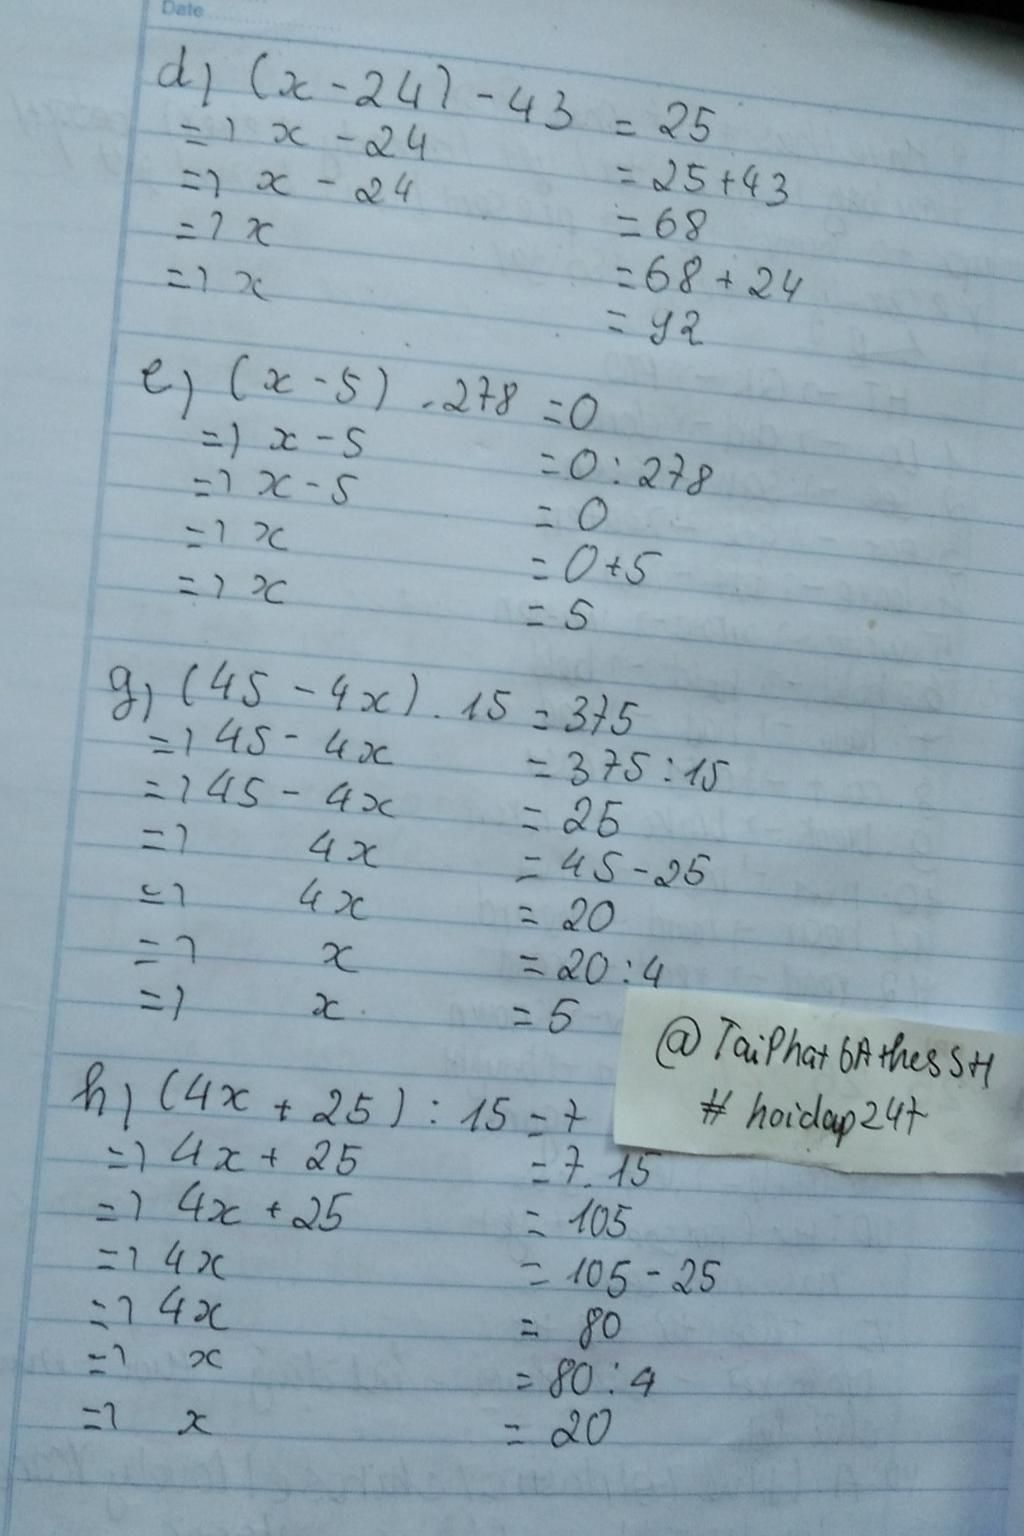 Date
d) (x - 24) - 43 = 25
=> x - 24 = 25 + 43
=> x - 24 = 68
=> x = 68 + 24
=> x = 92
e) (x - 5) . 278 = 0
=> x - 5 = 0 : 278
=> x - 5 = 0
=> x = 0 + 5
=> x = 5
g) (45 - 4x) . 15 = 375
=> 45 - 4x = 375 : 15
=> 45 - 4x = 25
=> 4x = 45 - 25
=> 4x = 20
=> x = 20 : 4
=> x = 5
@TaiPhat6AthesSH
# hoidap247
h) (4x + 25) : 15 = 7
=> 4x + 25 = 7 . 15
=> 4x + 25 = 105
=> 4x = 105 - 25
=> 4x = 80
=> x = 80 : 4
=> x = 20